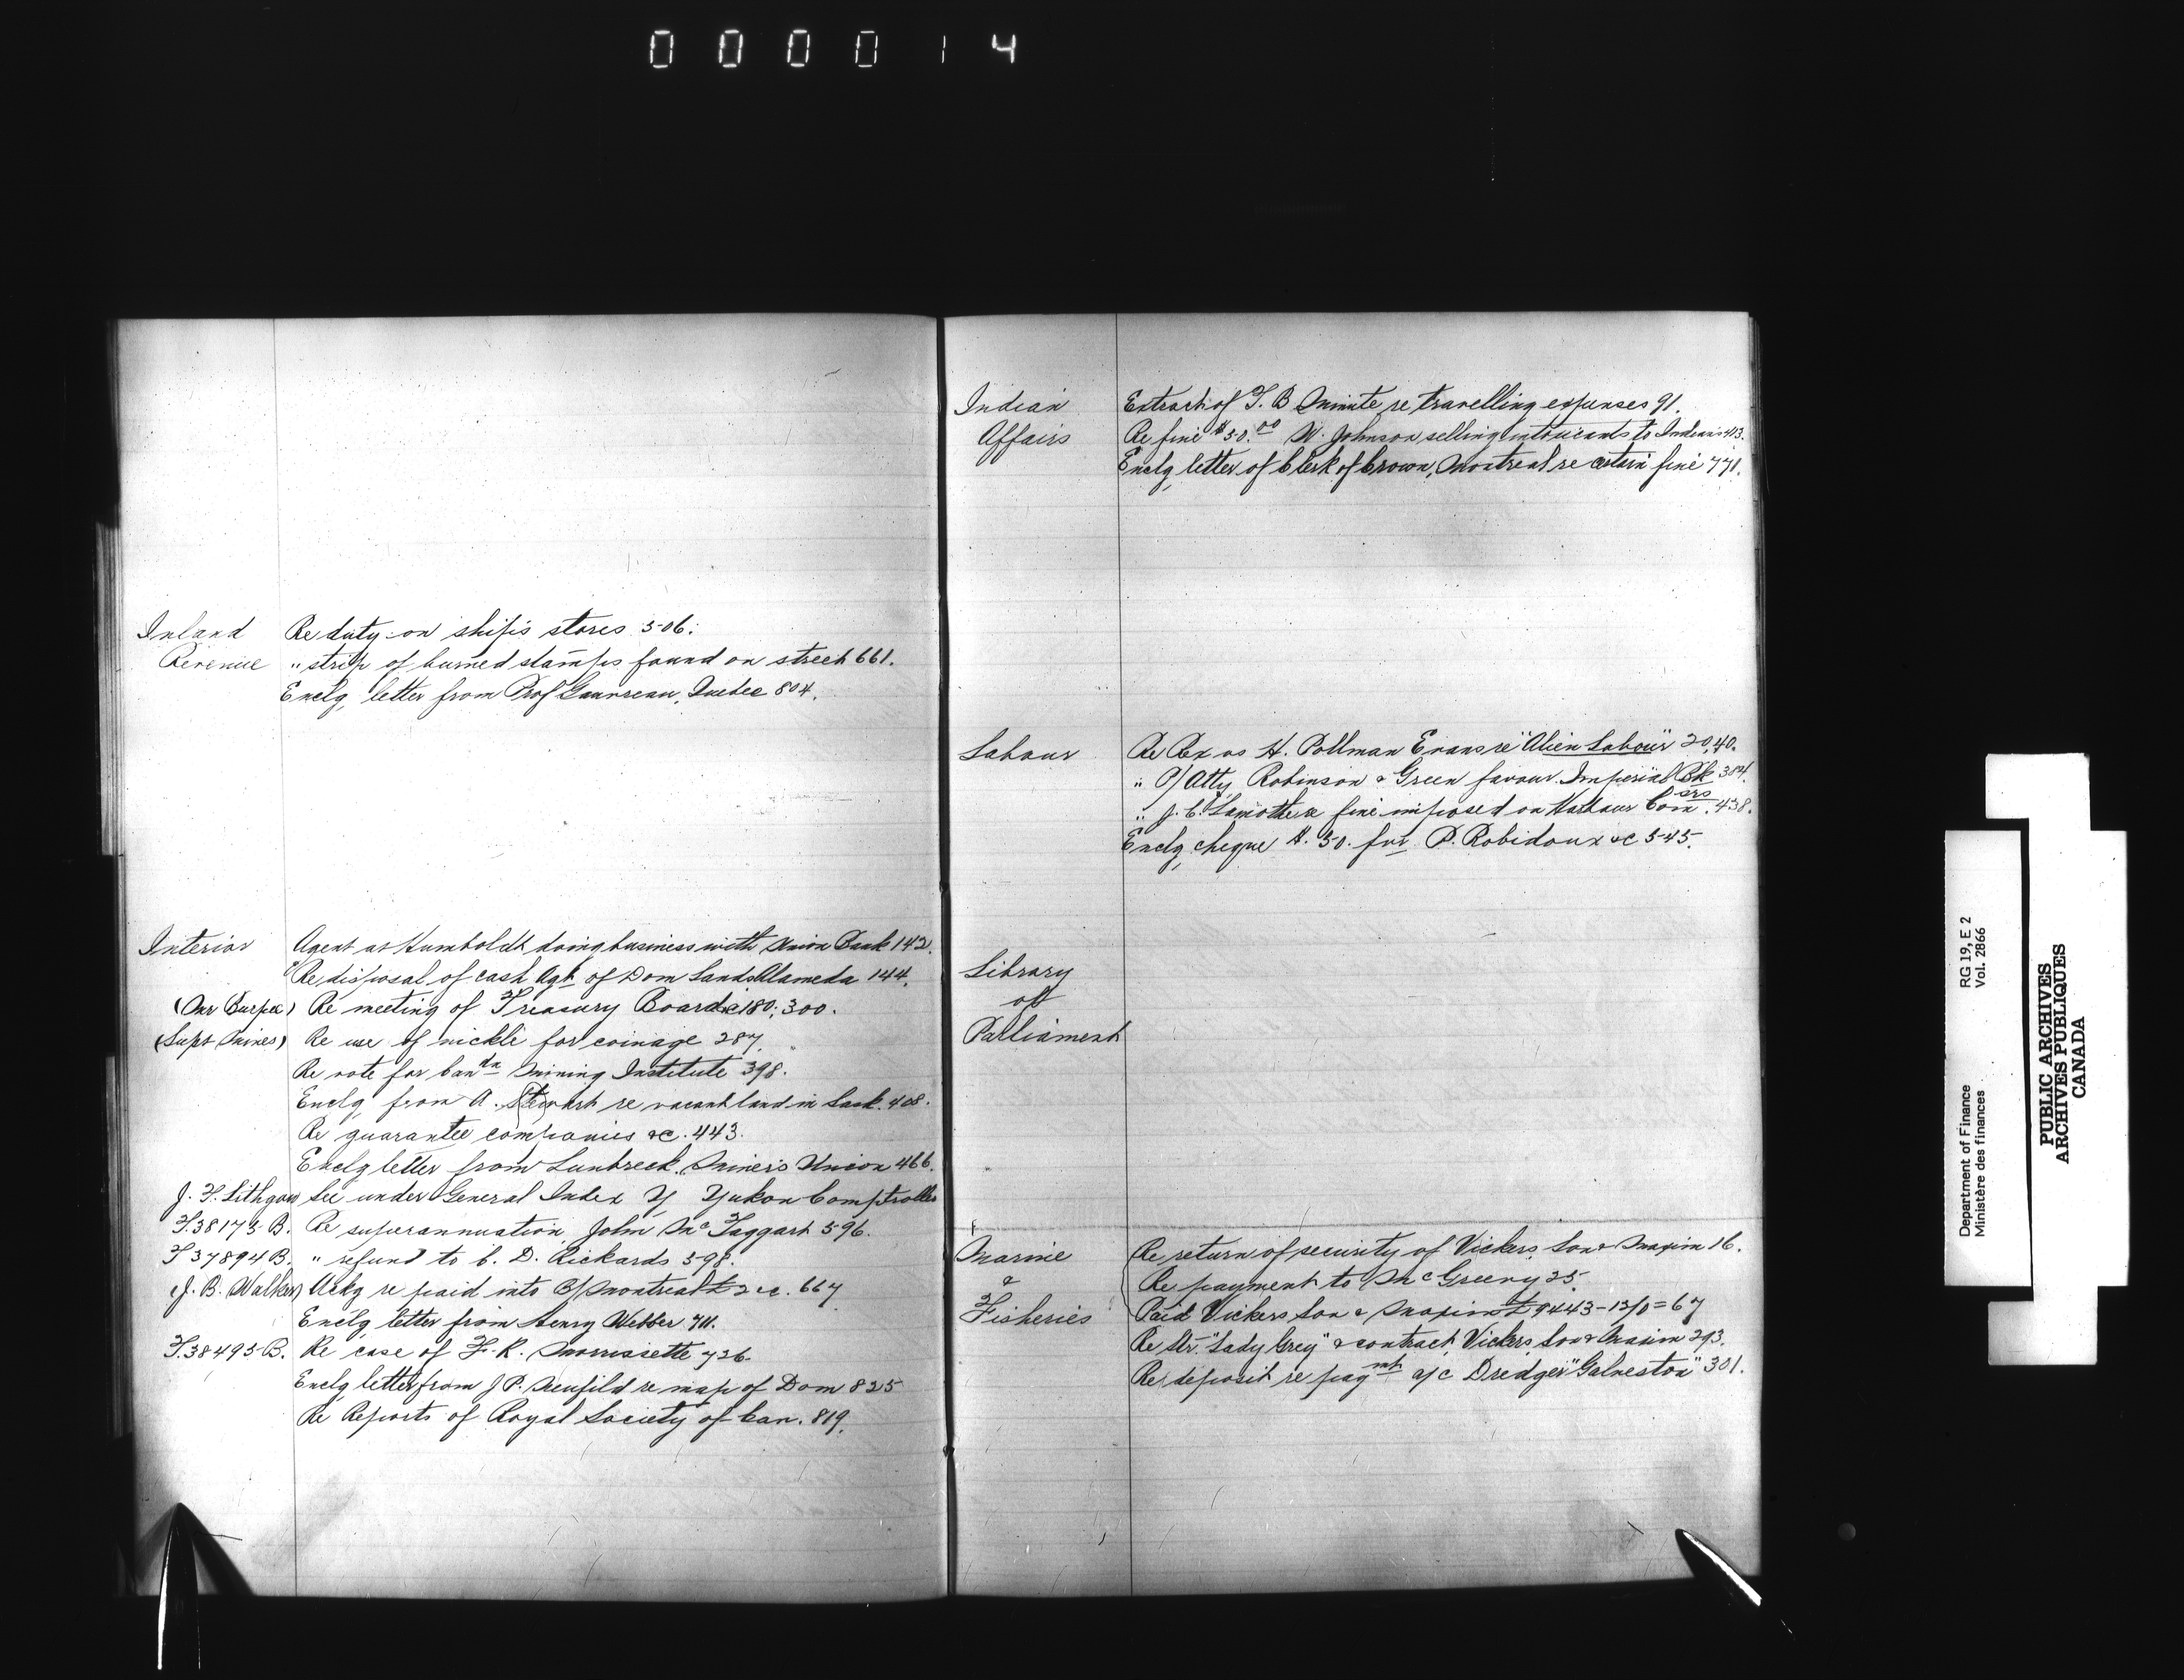 000014
Inland Re duty on ship's stores 506.
Revenue " strip of burned stamps found on street 661.
Enclg letter from Prof Gauvreau, Quebec 804.
Interior Agent at Humboldt doing business with Union Bank 142.
" Re disposal of cash Agt of Dom Lands Alameda 144.
(Mr Burpee) Re meeting of Treasury Board &c 180; 300.
(Supt Mines) Re use of nickle for coinage 287.
Re vote for Can da Mining Institute 398.
Enclg from A. Stewart re vacant land in Sask. 408.
Re guarantee companies &c. 443.
Enclg letter from Lunbreck, Miner's Union 466.
J. T. Lithgow See under General Index Y Yukon Comptroller
F.38175-B. Re superannuation John McTaggart 596.
F 37894 B. " refund to C. D. Rickards 598.
(J. B. Walker) Ackg re paid into B/Montreal 667
Enclg letter from Henry Webber 711.
F.38495-B. Re case of F. R. Morrissette 726.
Enclg letter from J P. Neufild re map of Dom 825
Re Reports of Royal Society of Can. 819.
Indian Extract of T. B Minute re travelling expenses 91.
Affairs Re fine $50.00 W. Johnson selling intoxicants to Indians 413.
Enclg letter of Clerk of Crown, Montreal re certain fine 771.
Labour Re Rex vs H. Pollman Evans re "Alien Labour" 20,40.
" P/Atty Robinson & Green favour Imperial Bk 384.
" J. C. Lamothe re fine imposed on Harbour Com srs. 438.
Enclg cheque $. 50. fvr P. Robidoux &c 545.
Library
of
Parliament
Marine Re return of security of Vickers Son & Maxim 16.
& Re payment to McGreevy 25.
Fisheries Paid Vickers Son & Maxim £9443-13/0 = 67
Re Str. "Lady Grey" & contract Vickers Son & Maxim 293.
Re deposit re pay mt a/c Dredge "Galveston" 301.
RG 19, E 2
Vol. 2866
Department of Finance
Ministère des finances
PUBLIC ARCHIVES
ARCHIVES PUBLIQUES
CANADA